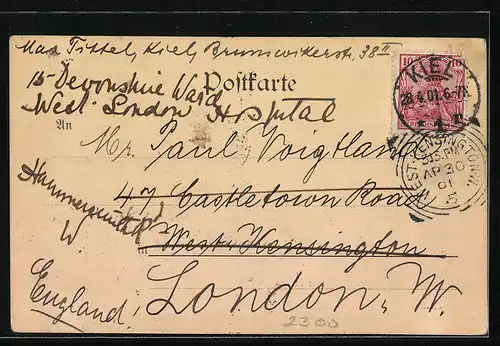 Max Tittel, Kiel, Brunswikerstr. 38 II
15-Devonshire Ward
West London Hospital
Postkarte
An
Mr. Paul Voigtland
47 Castletown Road
West-Kensington
Hammersmith Rd
W
London, W.
England.
2300
10 10
KIEL
29.4.01.6-7N.
1
WEST-KENSINGTON.W.
AP 30
01
5